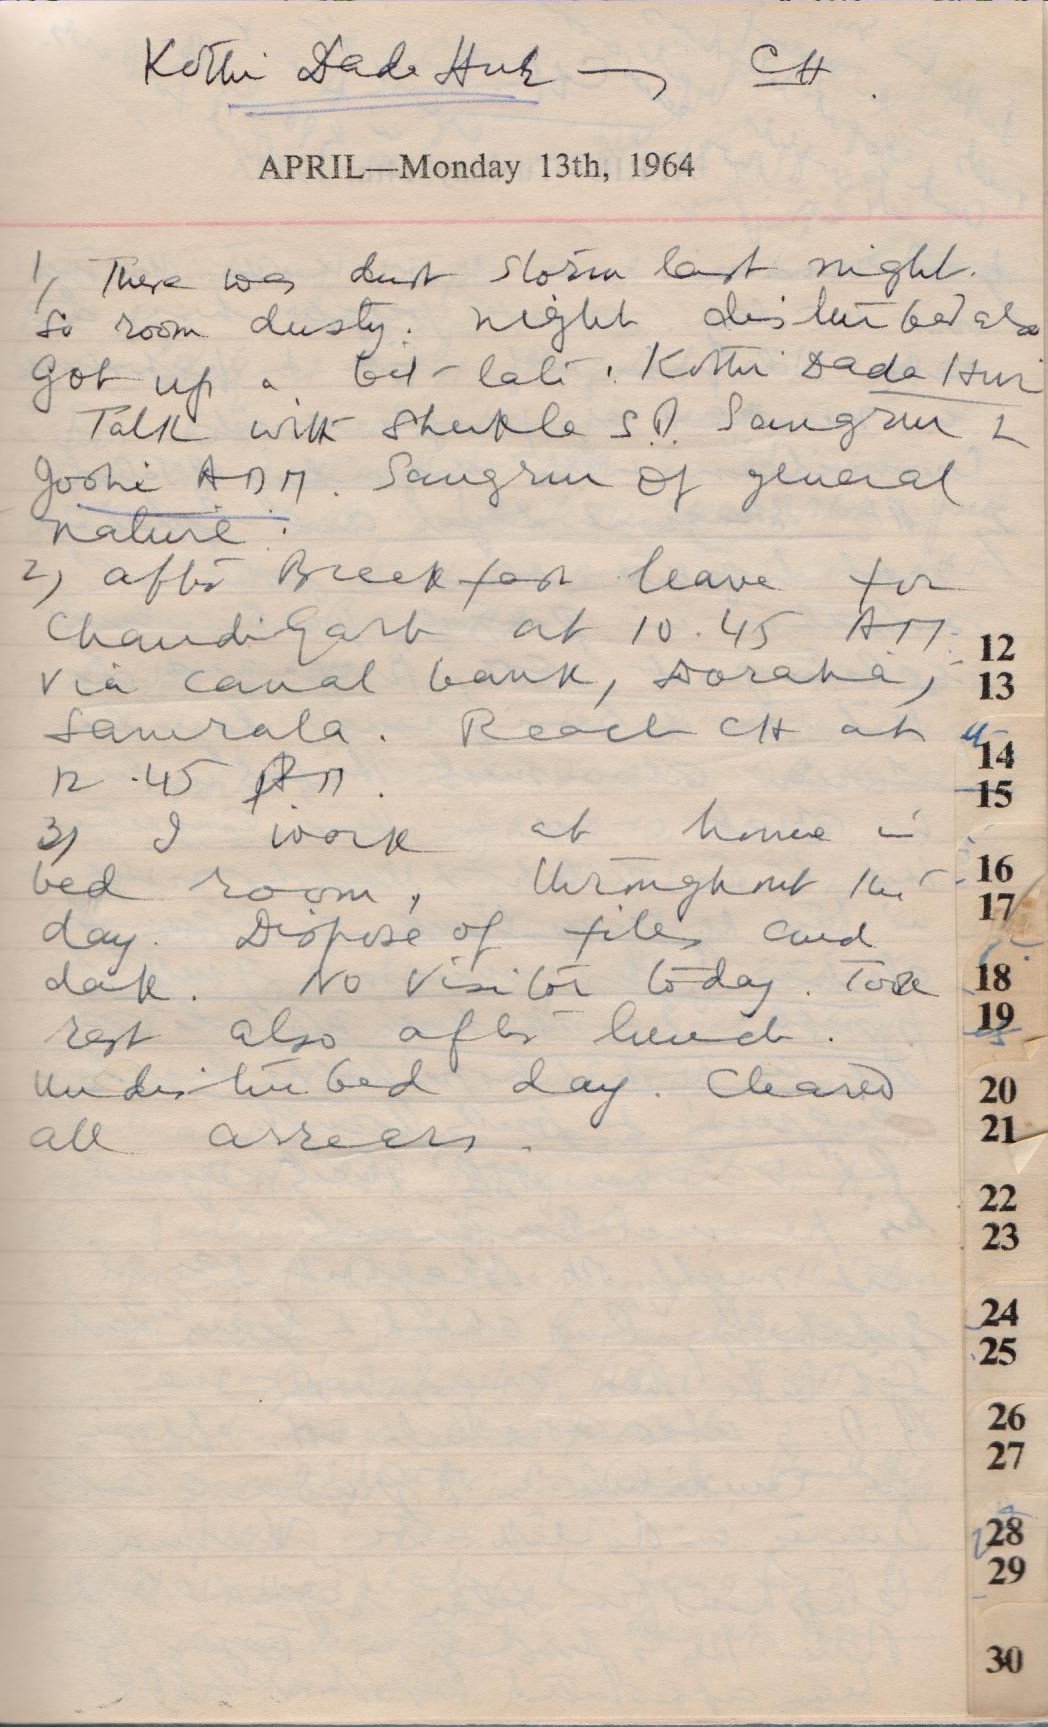 Kothi Dada Hur → CH.
APRIL—Monday 13th, 1964
1) There was dust storm last night.
So room dusty. night disturbed also
Got up a bit late. Kothi Dada Hur
Talk with Shukla S.P. Sangrur &
Joshi ADM. Sangrur of general
nature.
2) after Breekfast leave for
Chandigarh at 10.45 AM.
via canal bank, Doraha,
Samrala. Reach CH at
12.45 PM.
3) I work at home in
bed room, throughout the
day. Dispose of files and
dak. No visitor today. Took
rest also after lunch.
Undisturbed day. Cleared
all arrears.
12
13
14
15
16
17
18
19
20
21
22
23
24
25
26
27
28
29
30